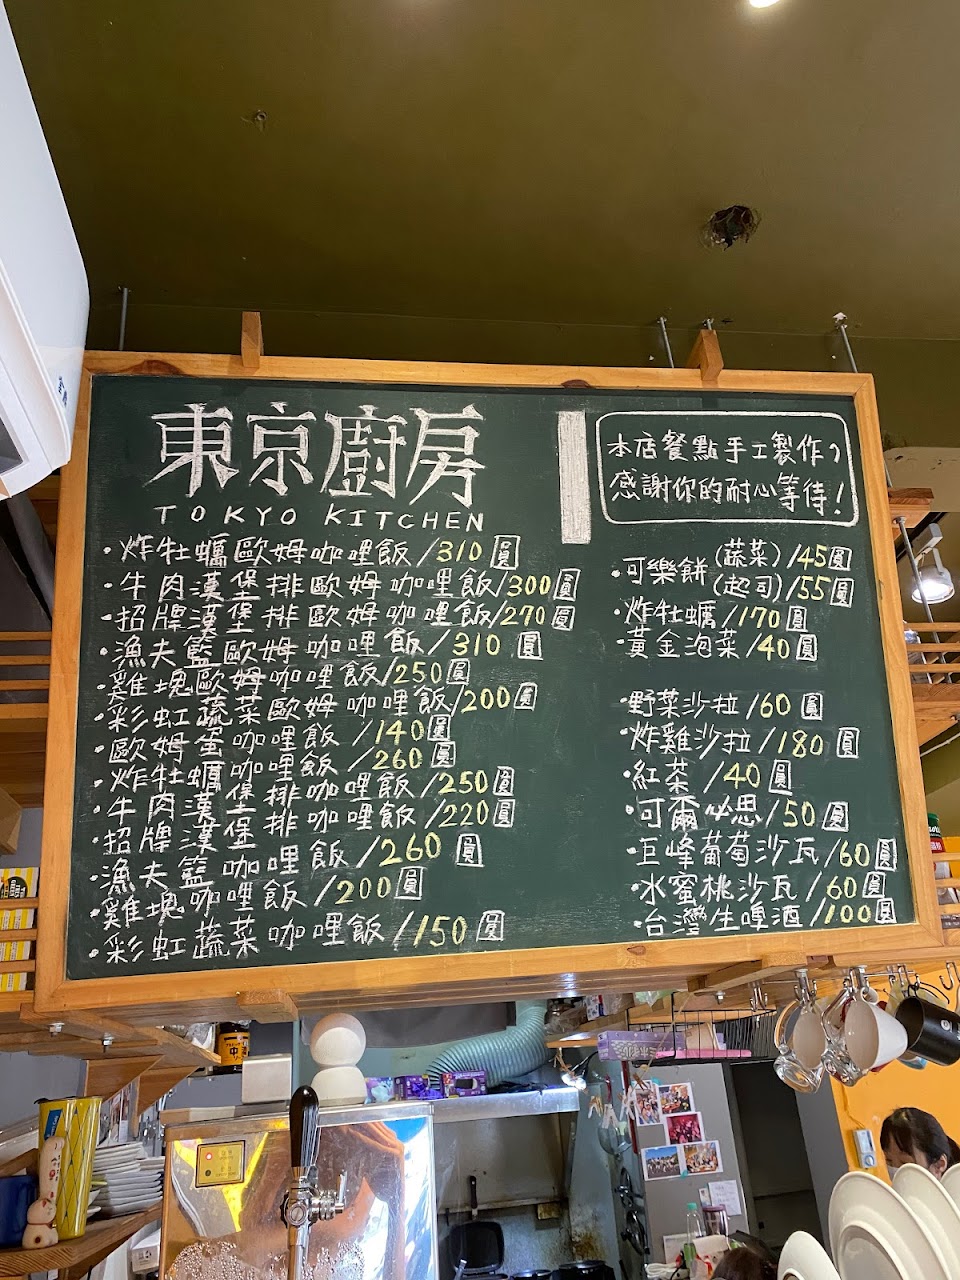 東京廚房
TOKYO KITCHEN
·炸牡蠣歐姆咖哩飯/310圓
·牛肉漢堡排歐姆咖哩飯/300圓
·招牌漢堡排歐姆咖哩飯/270圓
·漁夫籃歐姆咖哩飯/310圓
·雞塊歐姆咖哩飯/250圓
·彩虹蔬菜歐姆咖哩飯/200圓
·歐姆蛋咖哩飯/140圓
·炸牡蠣咖哩飯/260圓
·牛肉漢堡排咖哩飯/250圓
·招牌漢堡排咖哩飯/220圓
·漁夫籃咖哩飯/260圓
·雞塊咖哩飯/200圓
·彩虹蔬菜咖哩飯/150圓
本店餐點手工製作，
感謝你的耐心等待！
·可樂餅(蔬菜)/45圓
(起司)/55圓
·炸牡蠣/170圓
·黃金泡菜/40圓
·野菜沙拉/60圓
·炸雞沙拉/180圓
·紅茶/40圓
·可爾必思/50圓
·巨峰葡萄沙瓦/60圓
·水蜜桃沙瓦/60圓
·台灣生啤酒/100圓